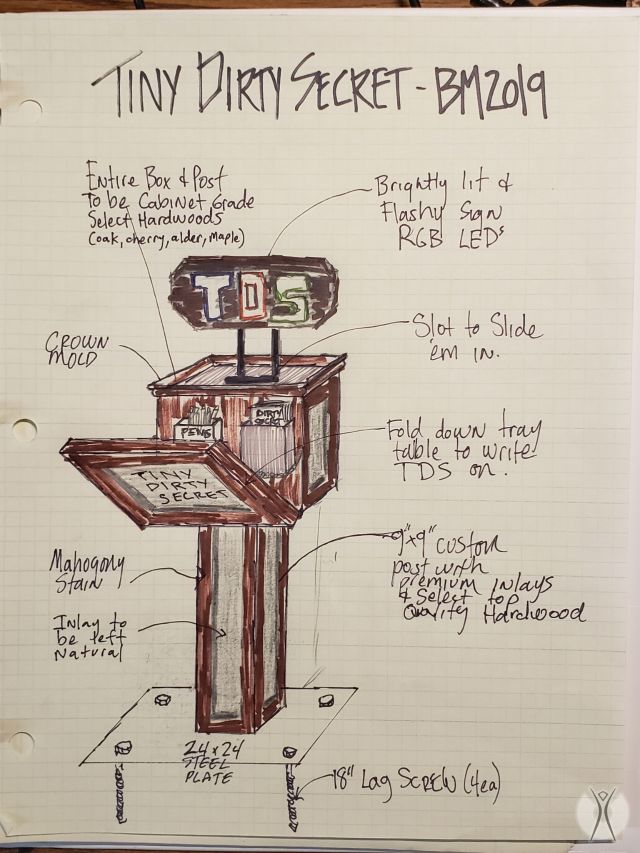 TINY DIRTY SECRET - BM2019
Entire Box & Post
To be Cabinet Grade
Select Hardwoods
(oak, cherry, alder, maple)
Brightly lit &
Flashy Sign
RGB LEDs
TDS
CROWN
MOLD
Slot to Slide
'em in.
PENS
DIRTY
SECRET
Fold down tray
table to write
TDS on.
TINY
DIRTY
SECRET
Mahogony
Stain
9"x9" custom
post with
premium inlays
& Select top
Quality Hardwood
Inlay to
be left
Natural
24x24
STEEL
PLATE
18" Lag SCREW (4ea)